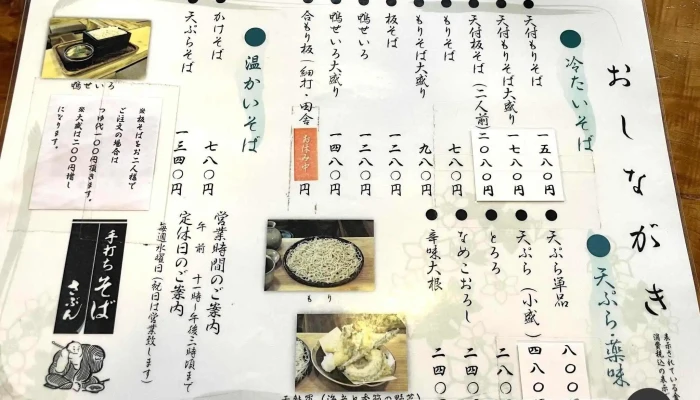 おしながき
表示されている金
消費税込の表示
冷たいそば
天付もりそば 一五八〇円
天付もりそば大盛り 一七八〇円
天付板そば（二人前） 二〇八〇円
もりそば 七八〇円
もりそば大盛り 九八〇円
板そば 一二八〇円
鴨せいろ 一二八〇円
鴨せいろ大盛り 一四八〇円
合もり板（細打・田舎） お休み中 円
温かいそば
かけそば 七八〇円
天ぷらそば 一三四〇円
鴨せいろ
※板そばをお二人様で
ご注文の場合は
つゆ代一〇〇円頂きます。
※大盛は二〇〇円増し
になります。
天ぷら・薬味
天ぷら単品 八〇〇
天ぷら（小盛） 四八〇
とろろ 二八〇
なめこおろし 二四〇
辛味大根 二四〇
もり
営業時間のご案内
午前 十一時～午後三時頃まで
定休日のご案内
毎週水曜日（祝日は営業致します）
手打ちそば
さぶん